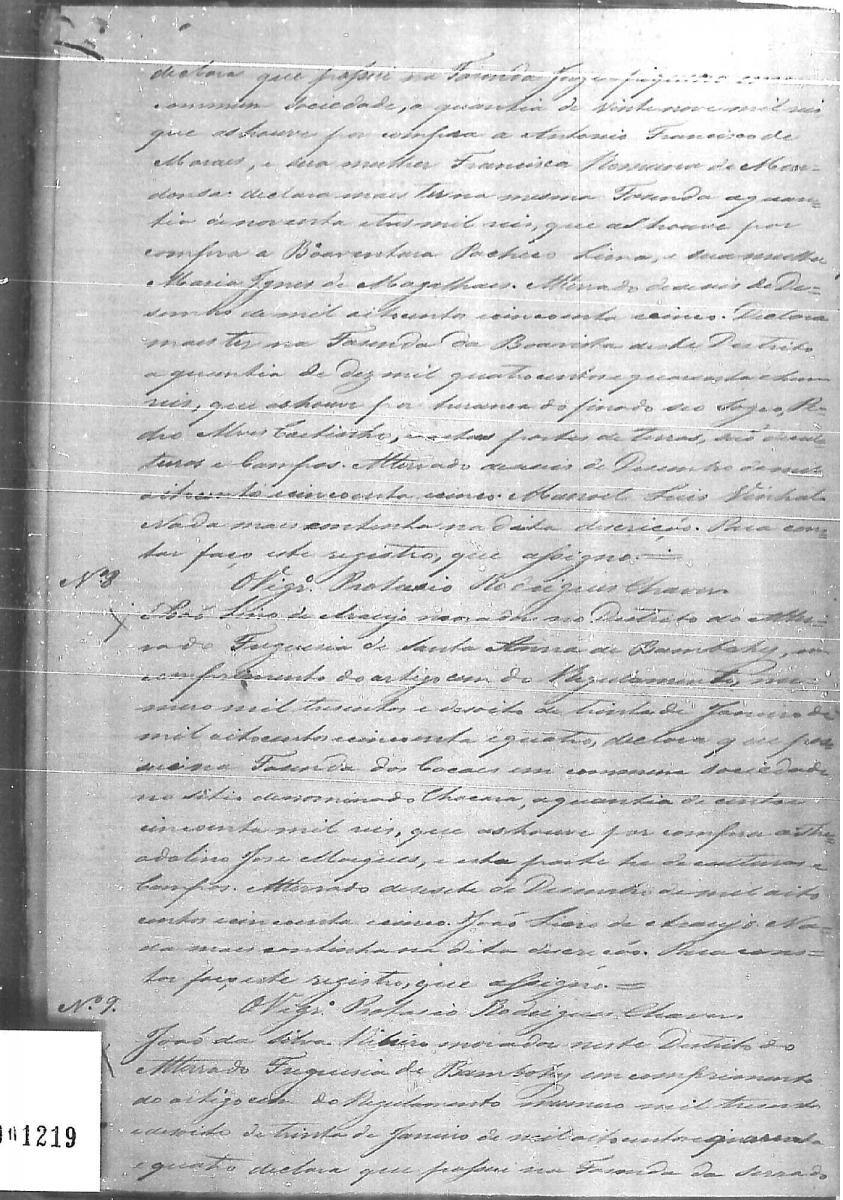 declara que possue na Fazenda
commum Sociedade, a quantia de vinte nove mil reis
que as houve por compra a Antonio Francisco de
Moraes, e sua mulher Francisca Romana de Men-
donsa: declara mais ter na mesma Fazenda a quan-
tia de noventa e tres mil reis, que as houve por
compra a Boaventura Pacheco Lima, e sua mulher
Maria Ignes de Magalhaes. Aterrado deseseis de De-
sembro de mil oitocentos e cincoenta e cinco. Declara
mais ter na Fasenda da Boavista deste Destrito
a quantia de dez mil quatrocentos e quarenta e hum
reis, que as houve por heransa do finado seo Sogro, Pe-
dro Alves Coutinho, e estas partes de terras, são de cul-
turas e Campos. Aterrado deseseis de Desembro de mil
oitocento e cincoenta e cinco. Manoel Luis Vinhal.
Nada mais continha na dita descrição. Para cons-
tar faço este registro, que assigno.=
Nº 8 O Vigrº. Protasio Rodrigues Chaves
João Lino de Araujo morador no Destrito do Ater-
rado Freguesia de Santa Anna de Bambohy, em
comprimento do artigo cem do Regulamento, nu-
mero mil tresentos e desoito de trinta de Janeiro de
mil oitocentos e cincoenta e quatro, declara que pos-
sue na Fasenda dos Cocaes em commum sociedade
no sitio denominado Chacara, a quantia de cento e
cincoenta mil reis, que as houve por compra a The-
odolino Jose Marques, e esta parte he de culturas e
Campos. Aterrado desesete de Desembro de mil oito
centos e cincoenta e cinco. João Lino de Araujo. Na-
da mais continha na dita descrição. Para cons-
tar faço este registro, que assigno.=
Nº 9. O Vigrº. Protasio Rodrigues Chaves
João da Silva Ribeiro morador neste Destrito do
Aterrado Freguesia de Bambohy em comprimento
do artigo cem do Regulamento numero mil tresento
e desoito de trinta de Janeiro de mil oitocentos e quarenta
e quatro declara que possue na Fasenda da Serrado
1219